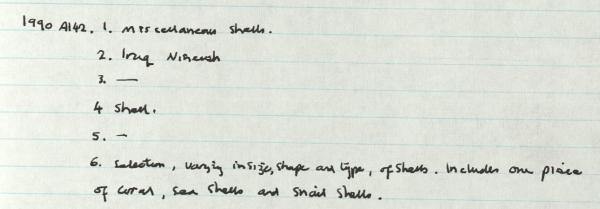 1990 A142. 1. Miscellaneous shells.
2. Iraq
3. —
4 Shell.
5. -
6. Selection, varying in size, shape and type, of shells. Includes one piece
of coral, sea shells and snail shells.